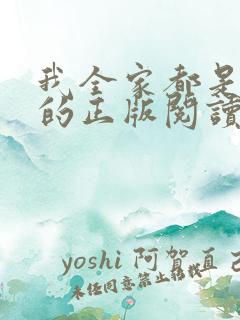 我全家都是
的正版閱讀
yoshi 阿賀直己
未经同意禁止转载